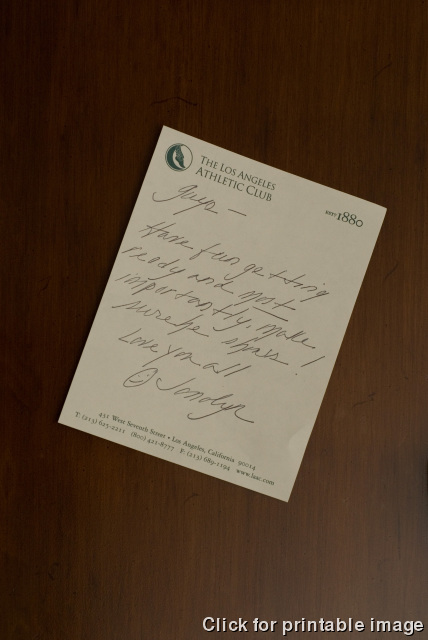 THE LOS ANGELES
ATHLETIC CLUB
EST 1880
guys —
Have fun getting
ready and most
importantly, make
shots!
Love you all
431 West Seventh Street • Los Angeles, California 90014
T: (213) 625-2211 (800) 421-8777 F: (213) 689-1194 www.laac.com
Click for printable image